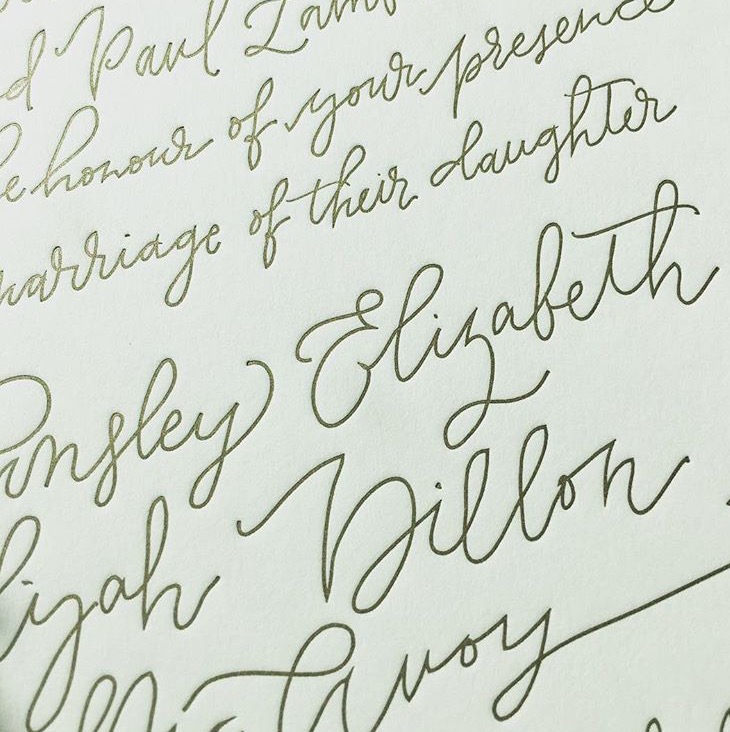 d Paul Lamb
honour of your presence
marriage of their daughter
Elizabeth
lijah Dillon
McAvoy